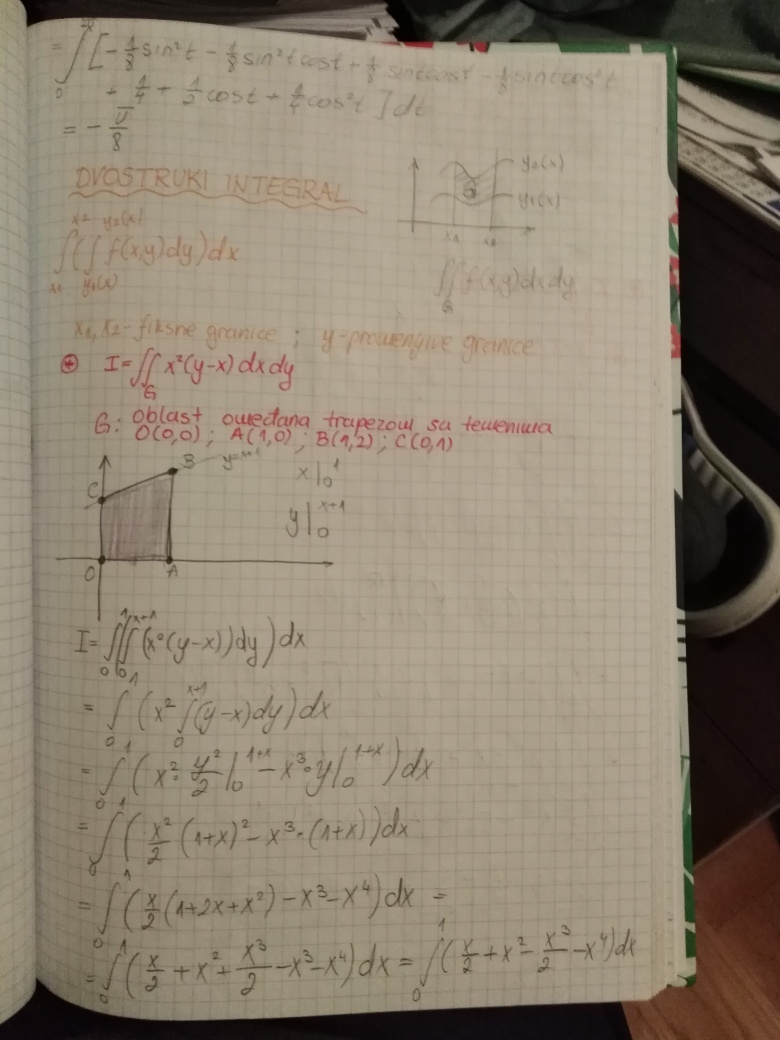 = ∫₀^2π [-1/8 sin²t - 1/8 sin²t cost + 1/8 sint cost - 1/8 sint cos²t
+ 1/4 + 1/2 cost + 1/4 cos²t ] dt
= - π/8
DVOSTRUKI INTEGRAL
y₂(x)
G
y₁(x)
x₁ x₂
∫_{x₁}^{x₂} ( ∫_{y₁(x)}^{y₂(x)} f(x,y)dy ) dx
∬_G f(x,y) dx dy
x₁, x₂ - fiksne granice ; y-promenjive granice
⊛ I = ∬_G x²(y-x) dx dy
G: Oblast omeđana trapezom sa temenima
O(0,0) ; A(1,0) ; B(1,2) ; C(0,1)
B y=x+1
C
O A
x|₀^1
y|₀^{x+1}
I = ∫₀^1 ( ∫₀^{x+1} (x²(y-x)) dy ) dx
= ∫₀^1 ( x² ∫₀^{x+1} (y-x) dy ) dx
= ∫₀^1 ( x² · y²/2 |₀^{1+x} - x³ · y|₀^{1+x} ) dx
= ∫₀^1 ( x²/2 (1+x)² - x³ · (1+x) ) dx
= ∫₀^1 ( x/2 (1+2x+x²) - x³ - x⁴ ) dx =
= ∫₀^1 ( x/2 + x² + x³/2 - x³ - x⁴ ) dx = ∫₀^1 ( x/2 + x² - x³/2 - x⁴ ) dx